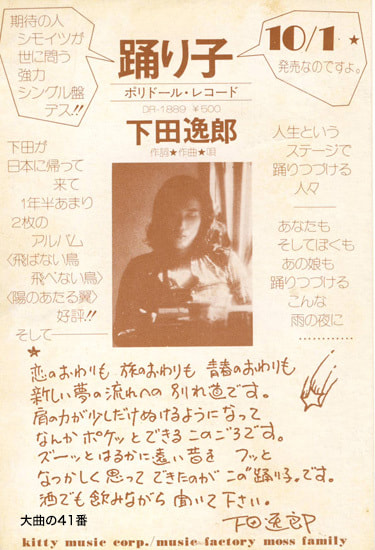 期待の人
シモイツが
世に問う
強力
シングル盤
デス!!
踊り子
ポリドール・レコード
DR-1889 ¥500
下田逸郎
作詞★作曲★唄
10/1★
発売なのですよ。
下田が
日本に帰って
来て
1年半あまり
2枚の
アルバム
〈飛ばない鳥
飛べない鳥〉
〈陽のあたる翼〉
好評!!
そして――
人生という
ステージで
踊りつづける
人々
あなたも
そしてぼくも
あの娘も
踊りつづける
こんな
雨の夜に
…………
★
恋のおわりも 旅のおわりも 青春のおわりも
新しい夢の流れへの 別れ道です。
肩の力が少しだけぬけるようになって
なんかポケッとできるこのごろです。
ズーッとはるかに遠い昔を フッと
なつかしく思って できたのが この“踊り子”です。
酒でも飲みながら 聞いて下さい。
下田逸郎
大曲の41番
kitty music corp./music factory moss family